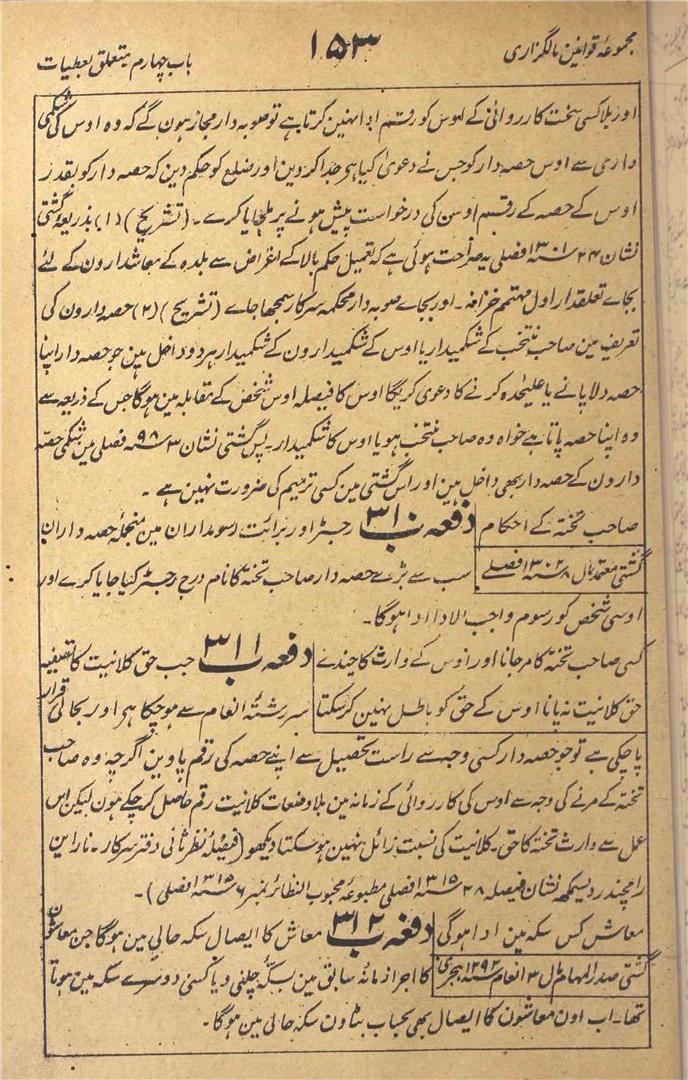 مجموعۂ قوانین مالگزاری
۱۵۳
باب چہارم متعلق بعطیات
اور بلاکسی سخت کارروائی کے اوس کو رقم ادا نہین کرتا ہے تو صوبہ دار مجاز ہون گے کہ وہ اوس کی شکمی
داری سے اوس حصہ دار کو جس نے دعویٰ کیا ہر جدا کر دین اور ضلع کو حکم دین کہ حصہ دار کو بقدر
اوس کے حصہ کے رقم اوسن کی درخواست پیش ہونے پر ملجایا کرے۔ (تشریح) (۱) بذریعۂ گشتی
نشان ۲۴ سنہ ۱۳۰۱ فصلی یہ صراحت ہوئی ہے کہ تعمیل حکم بالا کے اغراض سے بلدہ کے معاشدارون کے لئے
بجاے تعلقدار اول مہتمم خزانہ۔ اور بجاے صوبہ دار محکمہ سرکار سمجھا جاے (تشریح) (۲) حصہ دارون کی
تعریف مین صاحب منتخب کے شکمیدار یا اوس کے شکمیدارون کے شکمیدار ہر دو داخل ہین جو حصہ دار اپنا
حصہ دلا پانے یا علیحدہ کرنے کا دعویٰ کریگا اوس کا فیصلہ اوس شخص کے مقابلہ مین ہوگا جس کے ذریعہ سے
وہ اپنا حصہ پاتا ہے خواہ وہ صاحب منتخب ہو یا اوس کا شکمیدار۔ پس گشتی نشان ۳ سنہ ۹۸ فصلی مین شکمی حصہ
دارون کے حصہ دار بھی داخل ہین اور اس گشتی مین کسی ترمیم کی ضرورت نہین ہے۔
صاحب تختہ کے احکام دفعہ ۳۱۰ ب رجسٹر اور برائت رسومداران مین منجملہ حصہ داران
گشتی معتمد مال ۸ سنہ ۱۳۰۲ فصلی سب سے بڑے حصہ دار صاحب تختہ کا نام درج رجسٹر کیا جایا کرے اور
اوسی شخص کو رسوم واجب الادا ادا ہوگا۔
کسی صاحب تختہ کا مرجانا اور اوس کے وارث کا چندے دفعہ ۳۱۱ ب جب حق کلانیت کا تصفیہ
حق کلانیت نہ پانا اوس کے حق کو باطل نہین کر سکتا سررشتۂ انعام سے ہوچکا ہر اور بحالی قرار
پاچکی ہے تو جو حصہ دار کسی وجہ سے راست تحصیل سے اپنے حصہ کی رقم پاوین اگرچہ وہ صاحب
تختہ کے مرنے کی وجہ سے اوس کی کارروائی کے زمانہ مین بلا وضعات کلانیت رقم حاصل کر چکے ہون لیکن اس
عمل سے وارث تختہ کا حق۔ کلانیت کی نسبت زائل نہین ہو سکتا دیکھو (فیصلۂ نظر ثانی دفتر سرکار۔ نارائن
رامچندر دیسمکھ نشان فیصلہ ۲۸ سنہ ۱۳۱۵ فصلی مطبوعہ محبوب النظائر نمبر ۶ سنہ ۱۳۱۵ فصلی)۔
معاش کس سکہ مین ادا ہوگی دفعہ ۳۱۲ ب معاش کا ایصال سکہ حالی مین ہوگا جن معاشون
گشتی صدر المہام مال ۳ انعام سنہ ۱۲۹۲ ہجری کا اجرا زمانۂ سابق مین سکۂ چلنی و یا کسی دوسرے سکہ مین ہوتا
تھا۔ اب اون معاشون کا ایصال بھی بحساب بٹاون سکہ حالی مین ہوگا۔